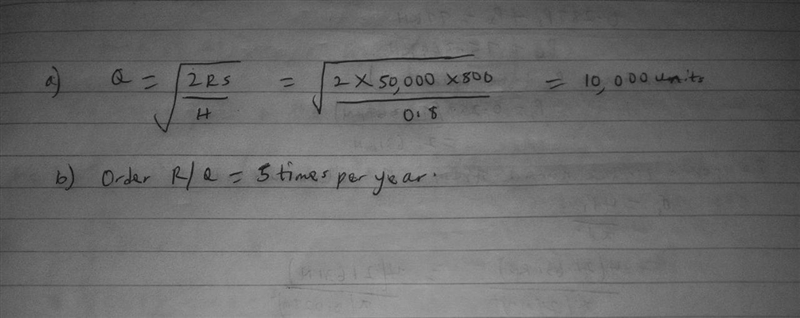 a) Q = √(2RS / H) = √(2 × 50,000 × 800 / 0.8) = 10,000 units
b) Order R/Q = 5 times per year.